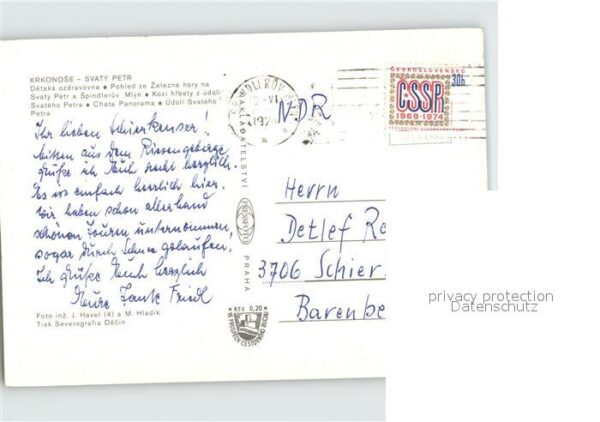 KRKONOŠE – SVATÝ PETR
Dětská ozdravovna • Pohled ze Železné hory na
Svatý Petr a Špindlerův Mlýn • Kozí hřbety z údolí
Svatého Petra • Chata Panorama • Údolí Svatého
Petra
Ihr lieben Schierkenser!
Mitten aus dem Riesengebirge
grüße ich Euch recht herzlich.
Es ist einfach herrlich hier.
Wir haben schon allerhand
schönen Touren unternommen,
sogar durch Schnee gelaufen.
Ich grüße Euch herzlich
Eure Tante Friedl
Foto inž. J. Havel (4) a M. Hladík
Tisk Severografia Děčín
NAKLADATELSTVÍ
PRESSFOTO
PRAHA
Kčs 0,20
VE PROSPĚCH CESTOVNÍHO RUCHU
NDR
ČESKOSLOVENSKO
30h
ČSSR
1969-1974
Herrn
Detlef Re
3706 Schier
Barenbe
privacy protection
Datenschutz